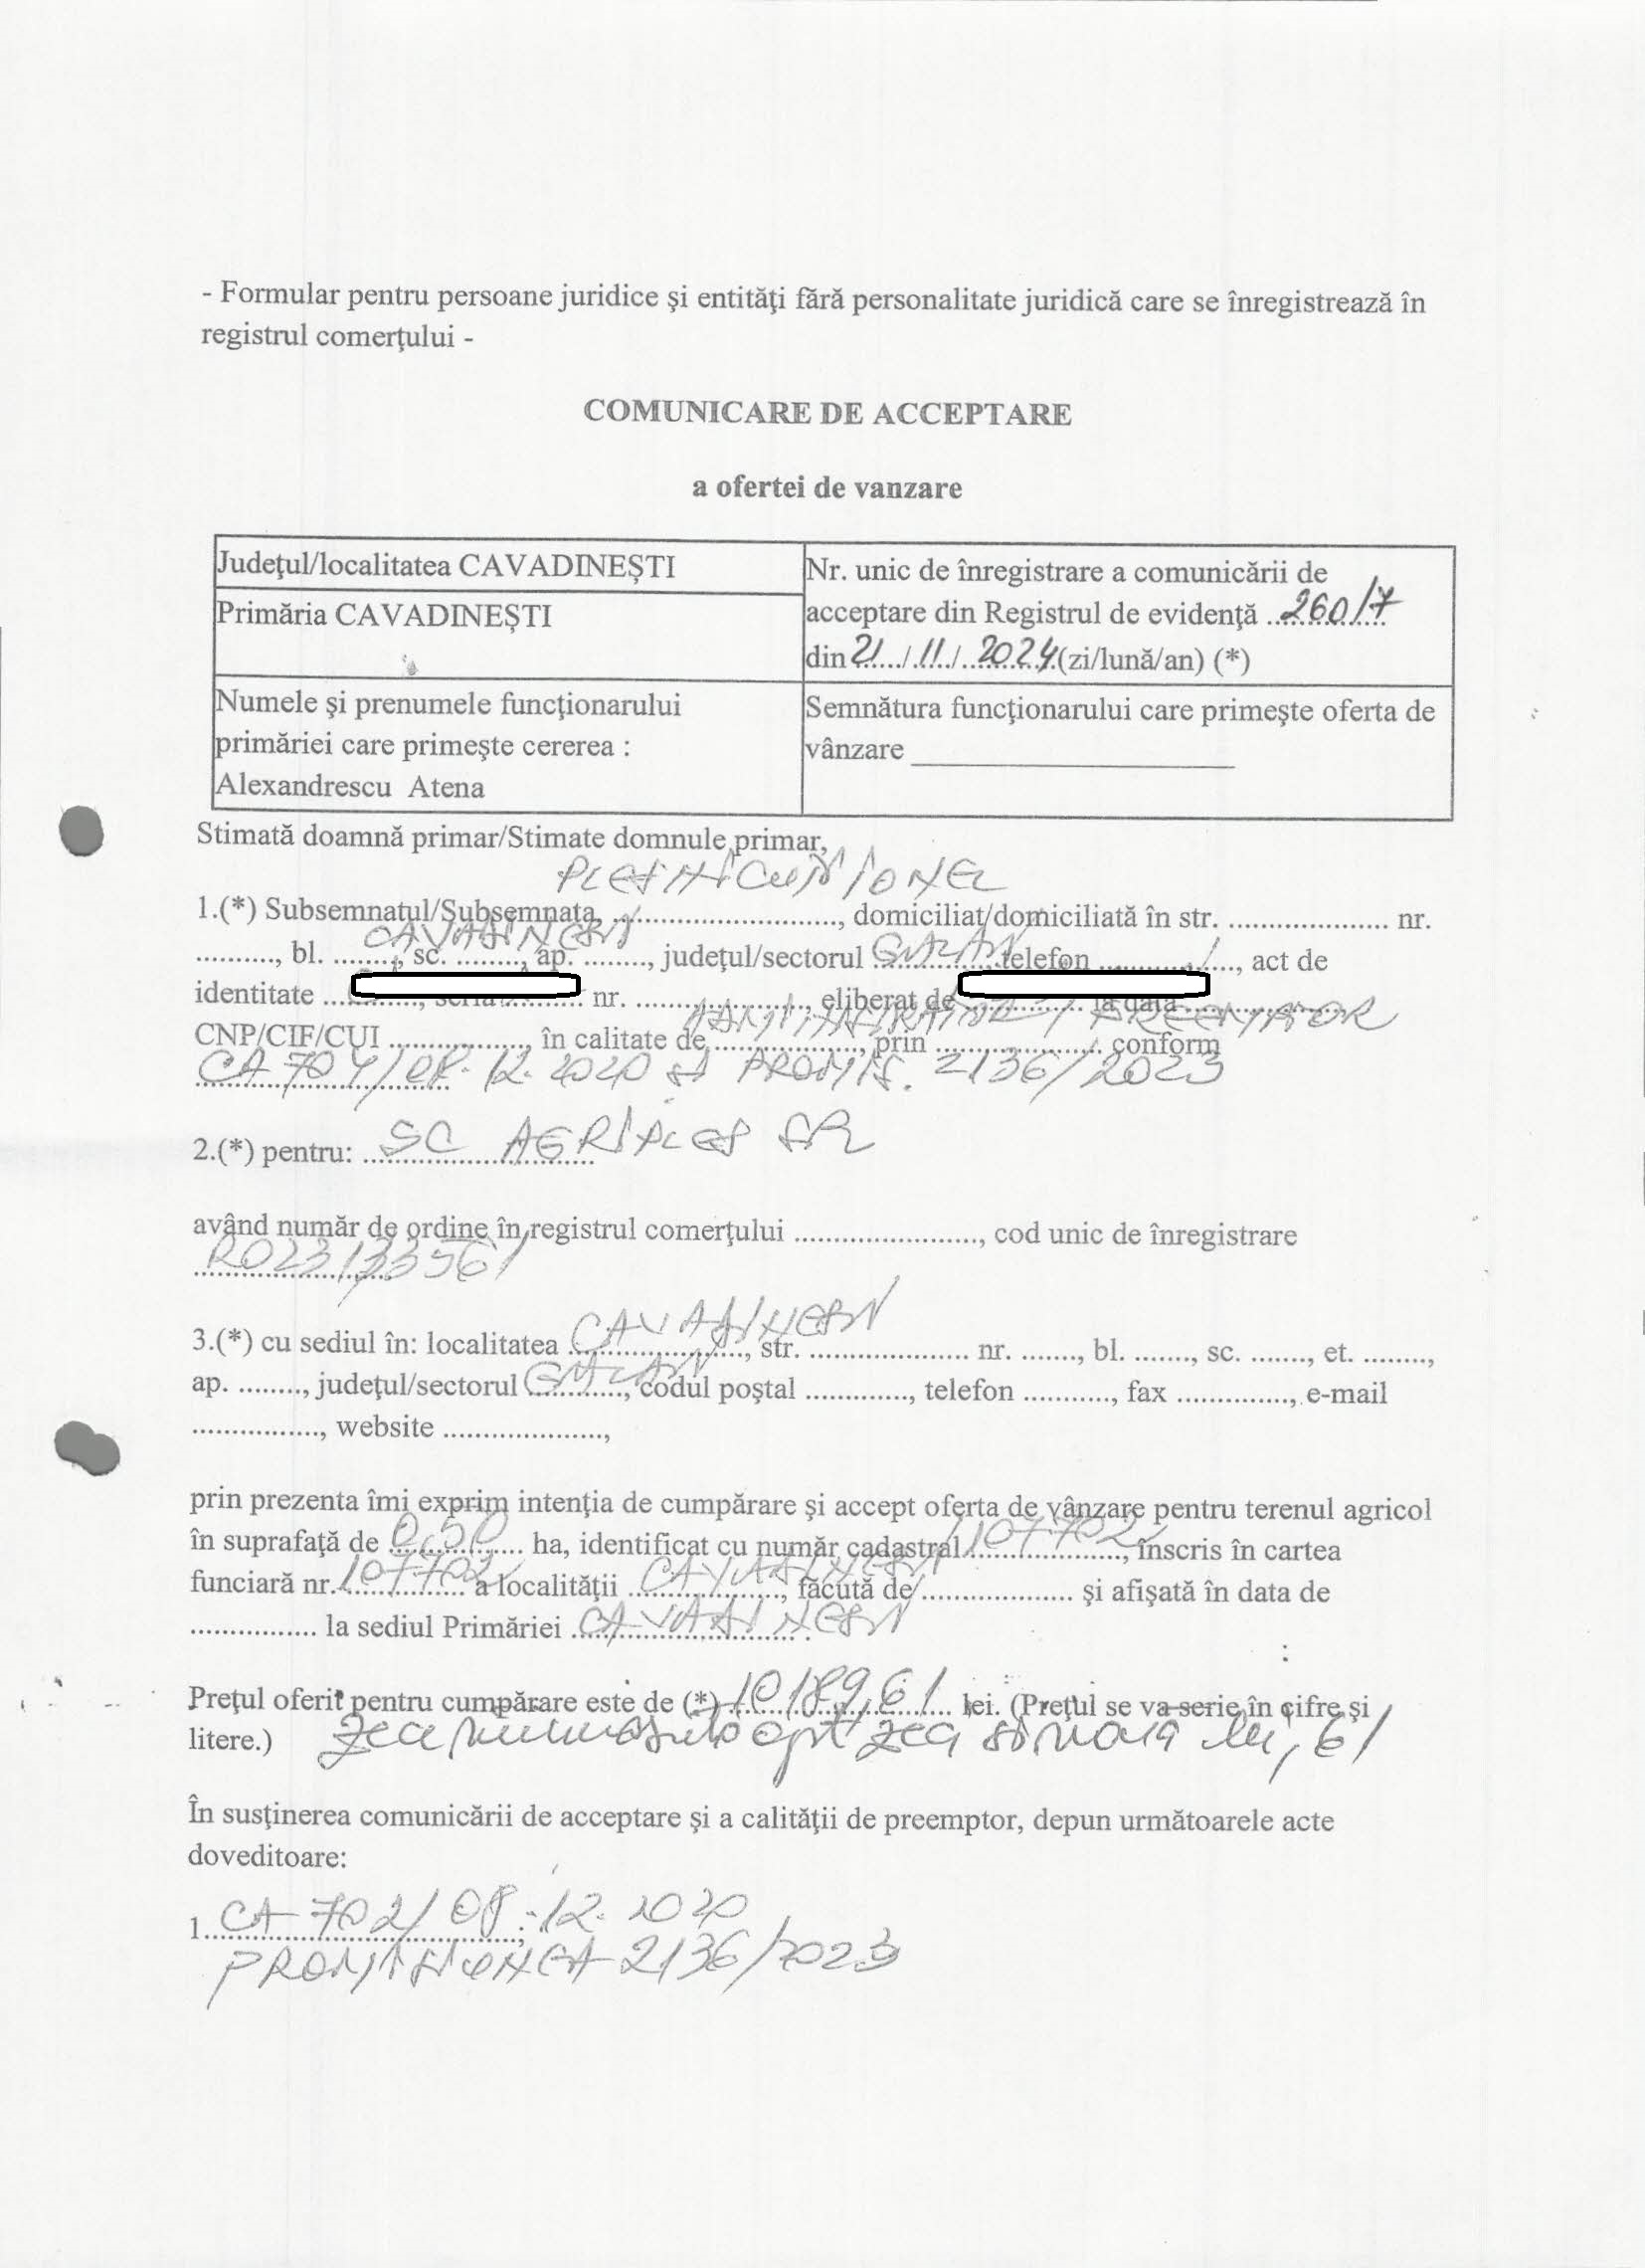 - Formular pentru persoane juridice şi entităţi fără personalitate juridică care se înregistrează în
registrul comerţului -
COMUNICARE DE ACCEPTARE
a ofertei de vanzare
Judeţul/localitatea CAVADINEȘTI
Primăria CAVADINEȘTI
Nr. unic de înregistrare a comunicării de
acceptare din Registrul de evidenţă ..260/7
din 21..../.11./..2024.(zi/lună/an) (*)
Numele şi prenumele funcţionarului
primăriei care primeşte cererea :
Alexandrescu Atena
Semnătura funcţionarului care primeşte oferta de
vânzare ____________________
Stimată doamnă primar/Stimate domnule primar,
IONEL
1.(*) Subsemnatul/Subsemnata, ............................, domiciliat/domiciliată în str. .................... nr.
CAVADINESTI
.........., bl. ........, sc. ........, ap. ........, judeţul/sectorul GALATI telefon ..............., act de
identitate ............, seria ............ nr. ....................., eliberat de ............... la data ....................
ADMINISTRATOR / PREEMTOR
CNP/CIF/CUI ................., în calitate de .................., prin ..................... conform
CA 704/08.12.2020 si PROMIS. 2136/2023
2.(*) pentru: SC AGRIPLES SRL
având număr de ordine în registrul comerţului ......................., cod unic de înregistrare
RO23133561
3.(*) cu sediul în: localitatea CAVADINESTI, str. .................... nr. ......., bl. ......., sc. ......., et. ........,
ap. ........, judeţul/sectorul GALATI, codul poştal ............., telefon ..........., fax .............., e-mail
................, website ....................,
prin prezenta îmi exprim intenţia de cumpărare şi accept oferta de vânzare pentru terenul agricol
în suprafaţă de 0,50 ha, identificat cu număr cadastral 107702, înscris în cartea
funciară nr. 107702 a localităţii CAVADINESTI, făcută de ................... şi afişată în data de
................ la sediul Primăriei CAVADINESTI.
Preţul oferit pentru cumpărare este de (*) 10189,61 lei. (Preţul se va scrie în cifre şi
litere.) zece opt zeci si noua lei, 61
În susţinerea comunicării de acceptare şi a calităţii de preemptor, depun următoarele acte
doveditoare:
1. CA 702/08.12.2020
2136/2023